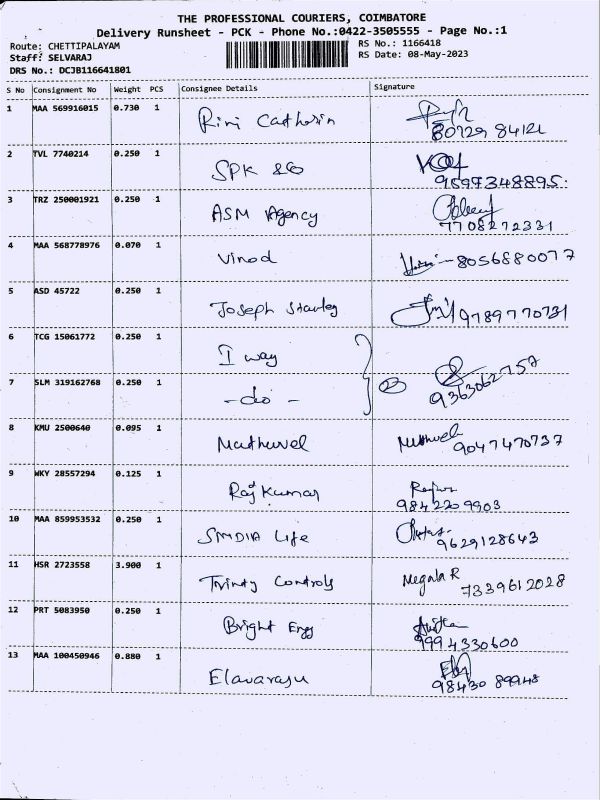 THE PROFESSIONAL COURIERS, COIMBATORE
Delivery Runsheet - PCK - Phone No.:0422-3505555 - Page No.:1
Route: CHETTIPALAYAM
RS No.: 1166418
Staff: SELVARAJ
RS Date: 08-May-2023
DRS No.: DCJB116641801
S No Consignment No Weight PCS Consignee Details Signature
1 MAA 569916015 0.730 1 Rini Catherin
80729 84121
2 TVL 7740214 0.250 1 SPK &Co
9697348895
3 TRZ 250001921 0.250 1 ASM Agency
7708272331
4 MAA 568778976 0.070 1 Vinod 8056880077
5 ASD 45722 0.250 1 Joseph Stanley 9789770731
6 TCG 15061772 0.250 1 I way
7 SLM 319162768 0.250 1 - do - 2 9363062757
8 KMU 2500640 0.095 1 Mathuvel 9047470737
9 WKY 28557294 0.125 1 Rajkumar
9842209903
10 MAA 859953532 0.250 1 Life
9629128643
11 HSR 2723558 3.900 1 Trinity Controls Megala R 7339612028
12 PRT 5083950 0.250 1 Bright Engg
9994330600
13 MAA 100450946 0.880 1 Elavarasu
98430 89948